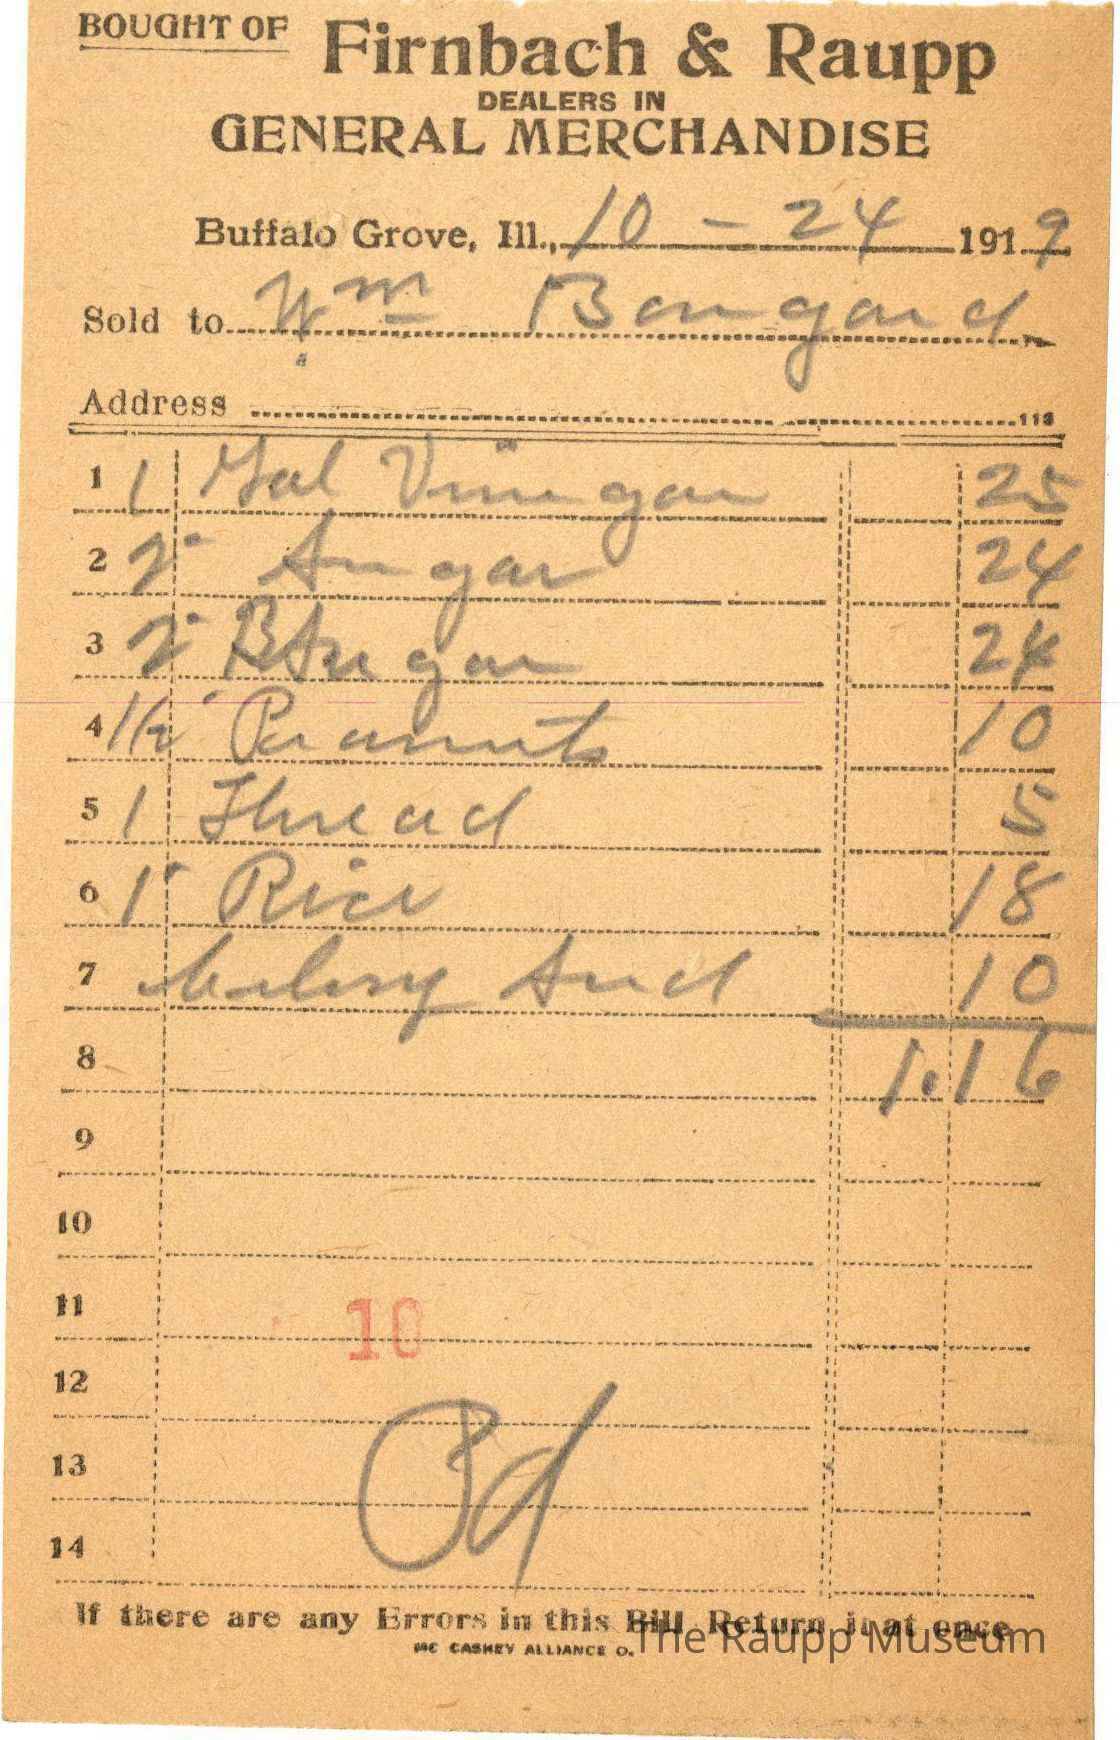 BOUGHT OF Firnbach & Raupp
DEALERS IN
GENERAL MERCHANDISE
Buffalo Grove, Ill., 10 - 24 1919
Sold to Wm Bangard
Address
113
1 1 Gal Vinegar 25
2 2 Sugar 24
3 2 B Sugar 24
4 1/2 Peanuts 10
5 1 Thread 5
6 1 Rice 18
7 Celery Seed 10
8 1.16
9
10
11
10
12
13
Pd
14
If there are any Errors in this Bill Return it at once
MC CASKEY ALLIANCE O.
The Raupp Museum